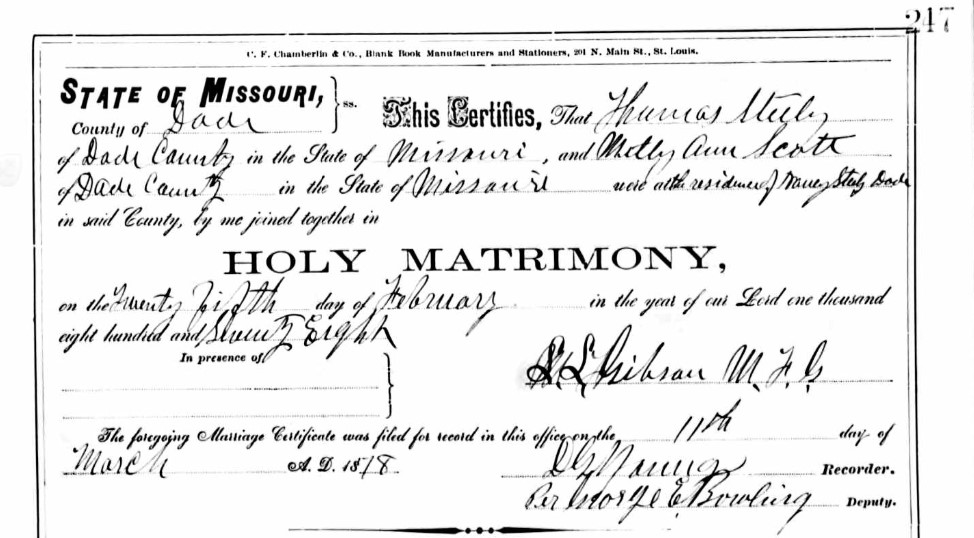 247
C. F. Chamberlin & Co., Blank Book Manufacturers and Stationers, 201 N. Main St., St. Louis.
STATE OF MISSOURI, } ss.
County of Dade
This Certifies, That Thumas Steely
of Dade County in the State of Missouri, and Molly Ann Scott
of Dade County in the State of Missouri were at the residence of Nancy Steely Dade
in said County, by me joined together in
HOLY MATRIMONY,
on the Twenty Fifth day of February in the year of our Lord one thousand
eight hundred and Seventy Eight
In presence of
Gibson M. F. G.
The foregoing Marriage Certificate was filed for record in this office on the 11th day of
March A. D. 1878
Young Recorder.
Per George E. Bowling Deputy.